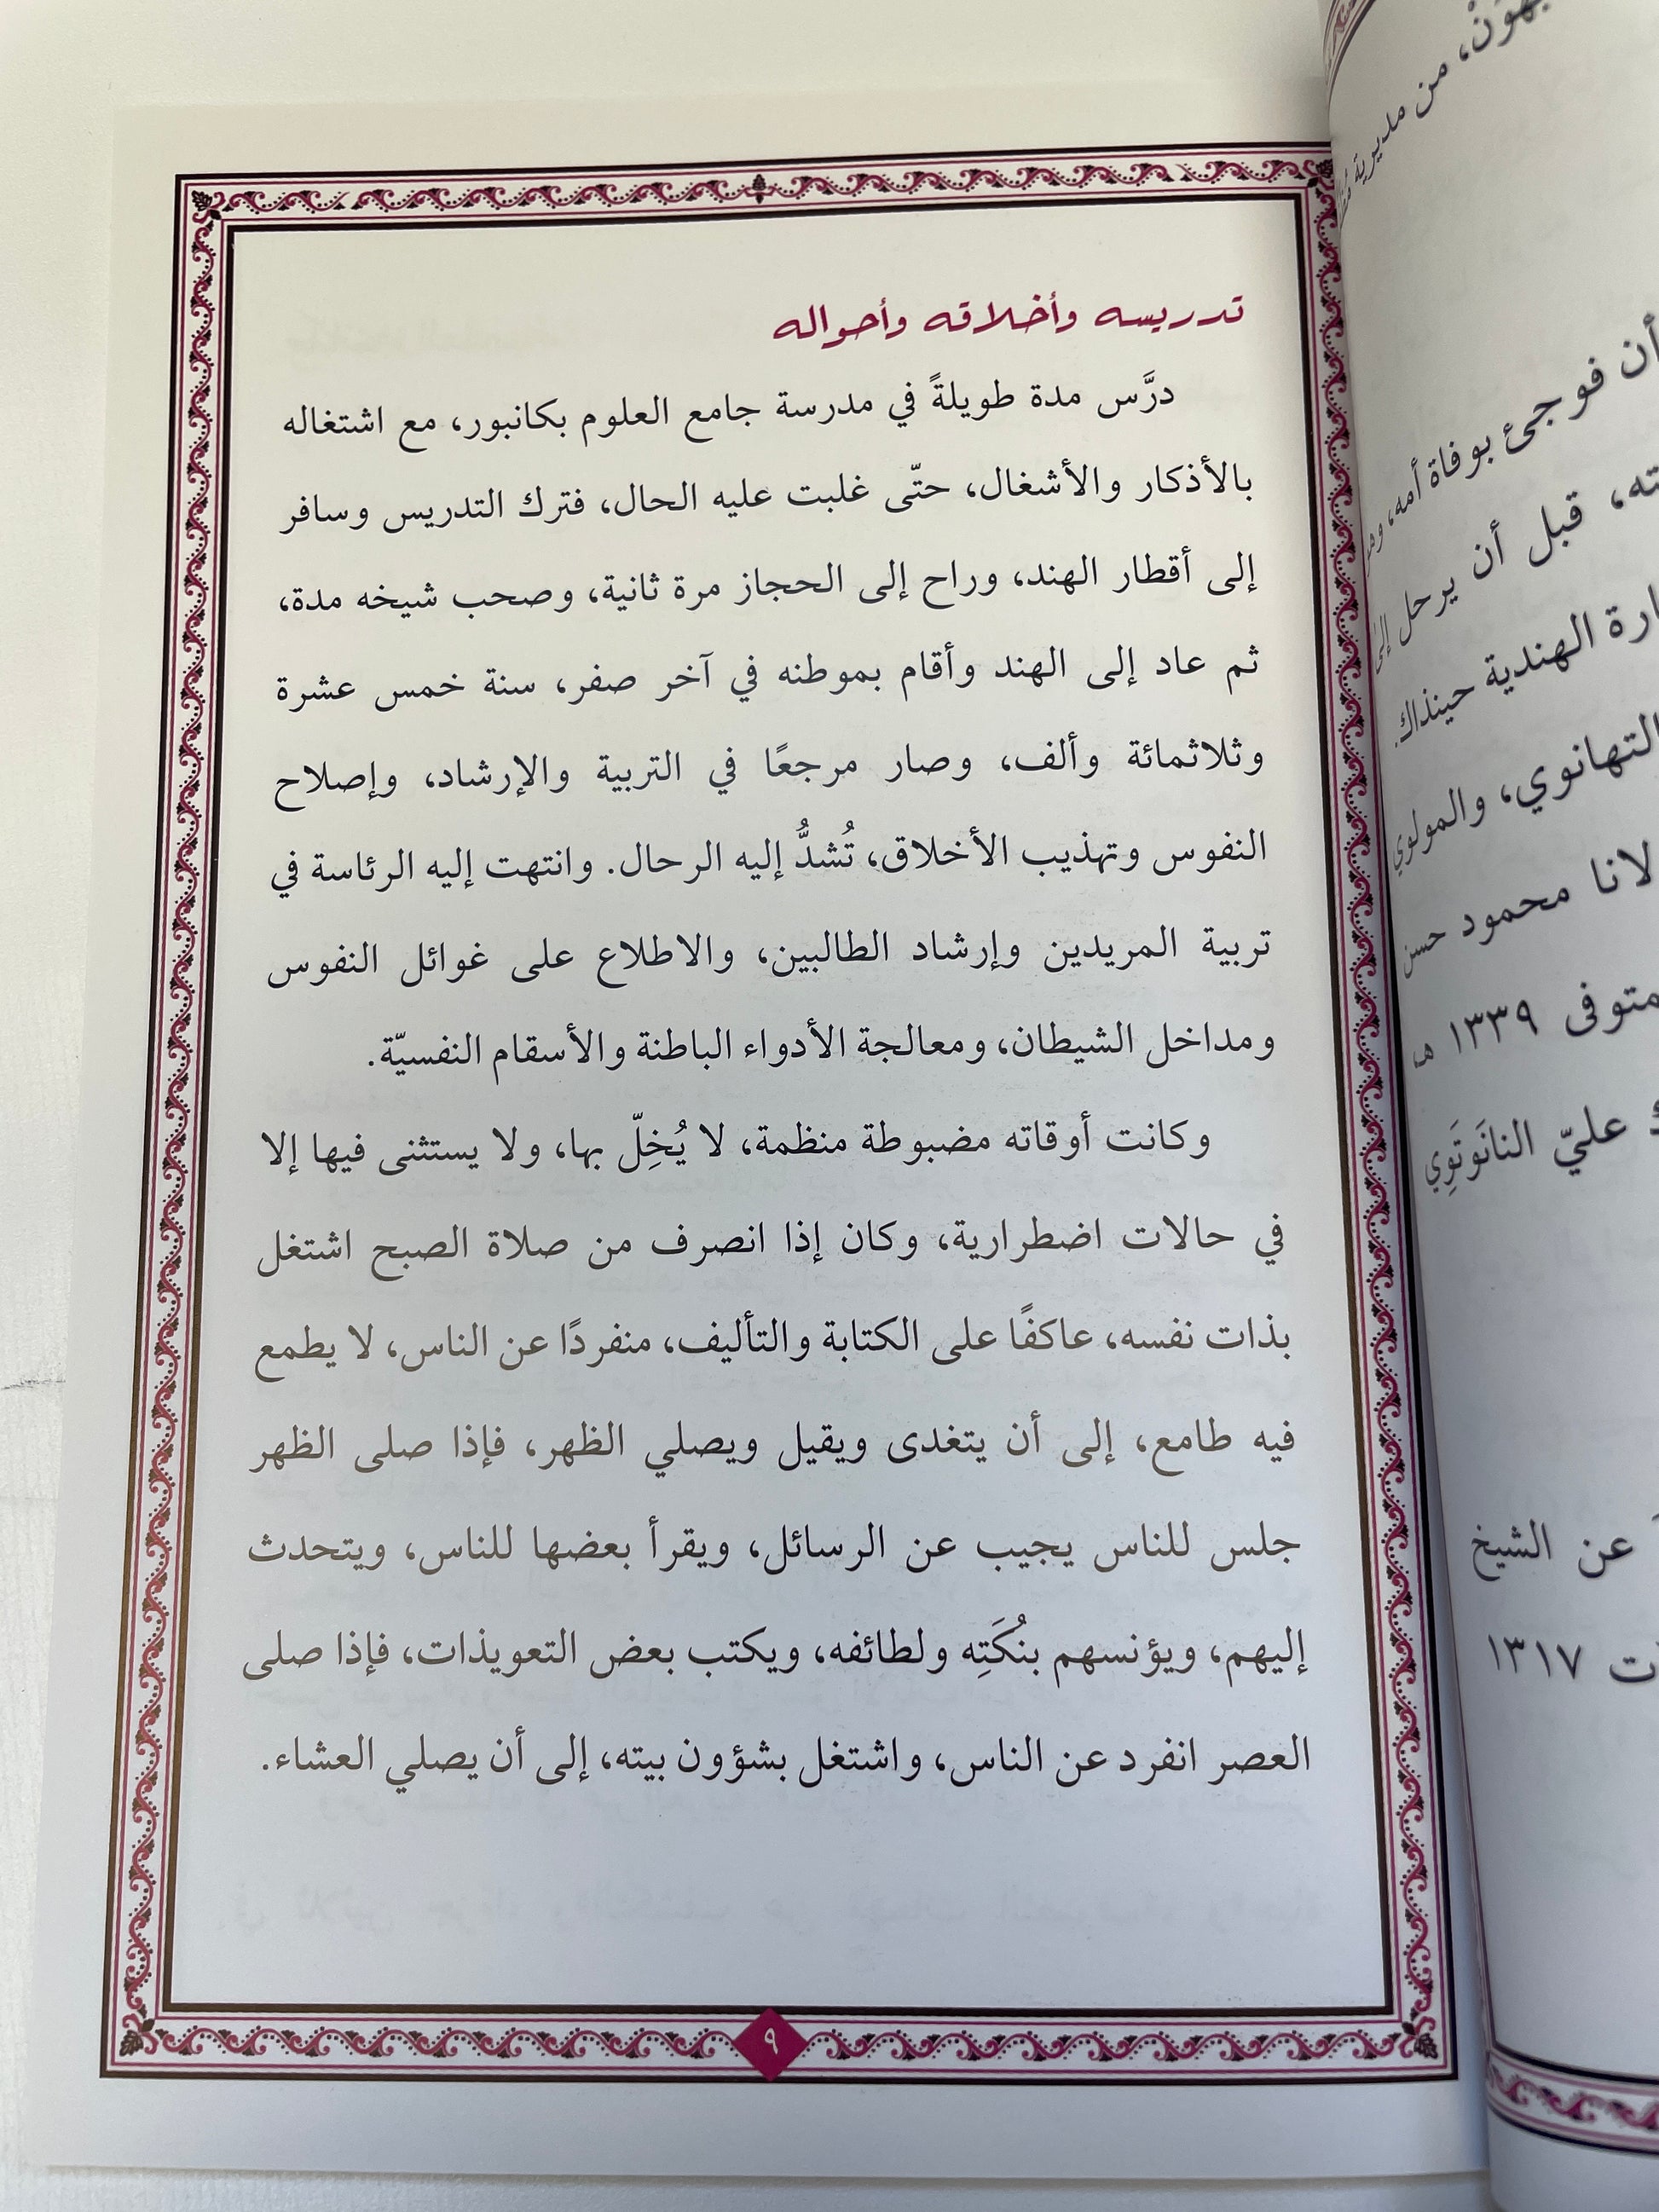 تدريسه وأخلاقه وأحواله
درَّس مدة طويلةً في مدرسة جامع العلوم بكانبور، مع اشتغاله
بالأذكار والأشغال، حتّى غلبت عليه الحال، فترك التدريس وسافر
إلى أقطار الهند، وراح إلى الحجاز مرة ثانية، وصحب شيخه مدة،
ثم عاد إلى الهند وأقام بموطنه في آخر صفر، سنة خمس عشرة
وثلاثمائة وألف، وصار مرجعًا في التربية والإرشاد، وإصلاح
النفوس وتهذيب الأخلاق، تُشدُّ إليه الرحال. وانتهت إليه الرئاسة في
تربية المريدين وإرشاد الطالبين، والاطلاع على غوائل النفوس
ومداخل الشيطان، ومعالجة الأدواء الباطنة والأسقام النفسيّة.
وكانت أوقاته مضبوطة منظمة، لا يُخِلّ بها، ولا يستثنى فيها إلا
في حالات اضطرارية، وكان إذا انصرف من صلاة الصبح اشتغل
بذات نفسه، عاكفًا على الكتابة والتأليف، منفردًا عن الناس، لا يطمع
فيه طامع، إلى أن يتغدى ويقيل ويصلي الظهر، فإذا صلى الظهر
جلس للناس يجيب عن الرسائل، ويقرأ بعضها للناس، ويتحدث
إليهم، ويؤنسهم بنُكَتِه ولطائفه، ويكتب بعض التعويذات، فإذا صلى
العصر انفرد عن الناس، واشتغل بشؤون بيته، إلى أن يصلي العشاء.
٩
من مديرية
أن فوجئ بوفاة أمه،
قبل أن يرحل
الهندية حينذاك.
التهانوي، والمولوي
محمود حسن
١٣٣٩ هـ
عليّ النانَوتَوِي
عن الشيخ
١٣١٧